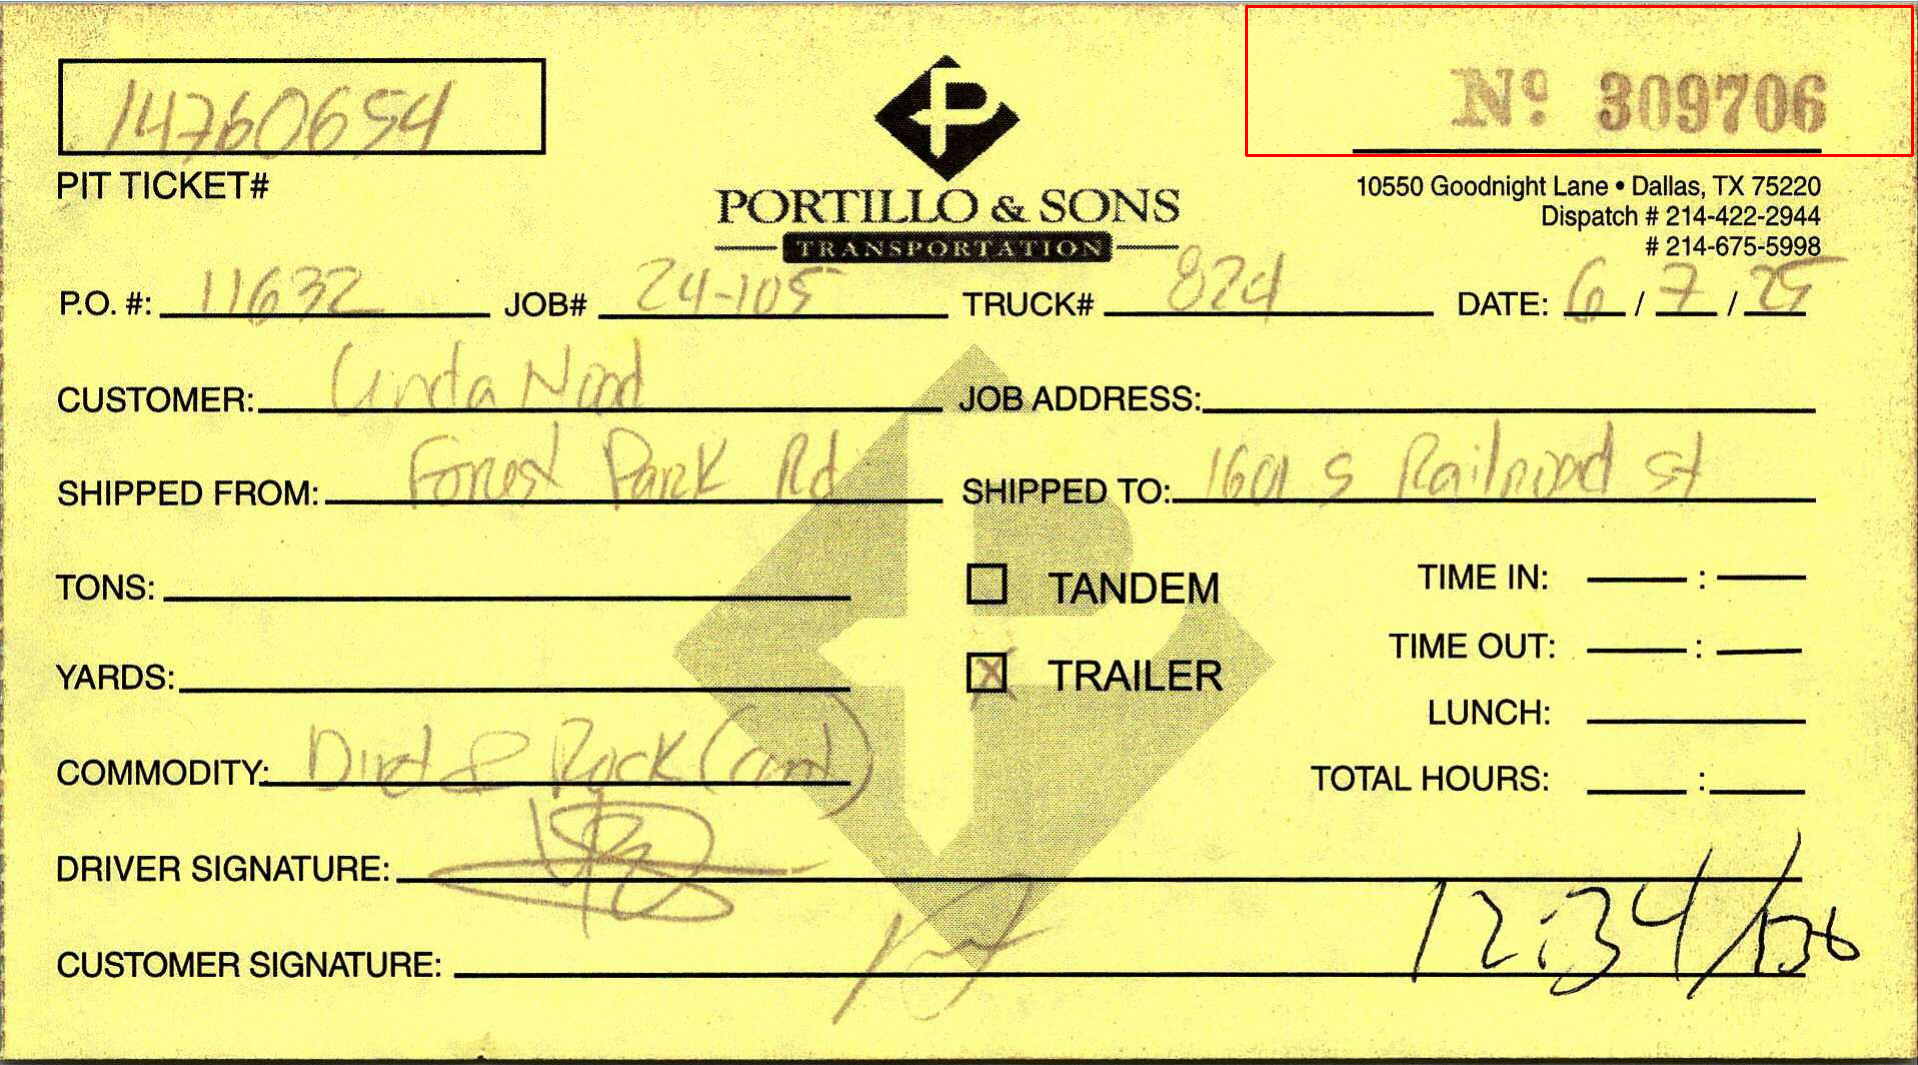 14760654
PIT TICKET#
Nº 309706
PORTILLO & SONS
TRANSPORTATION
10550 Goodnight Lane • Dallas, TX 75220
Dispatch # 214-422-2944
# 214-675-5998
P.O. #: 11632 JOB# 24-105 TRUCK# 824 DATE: 6 / 7 / 25
CUSTOMER: Linda Nood JOB ADDRESS:
SHIPPED FROM: Forest Park Rd SHIPPED TO: 1601 S Railroad St
TONS: TANDEM TIME IN: :
YARDS: X TRAILER TIME OUT: :
LUNCH:
COMMODITY: Dirt & Rock TOTAL HOURS: :
DRIVER SIGNATURE:
12:34/
CUSTOMER SIGNATURE: